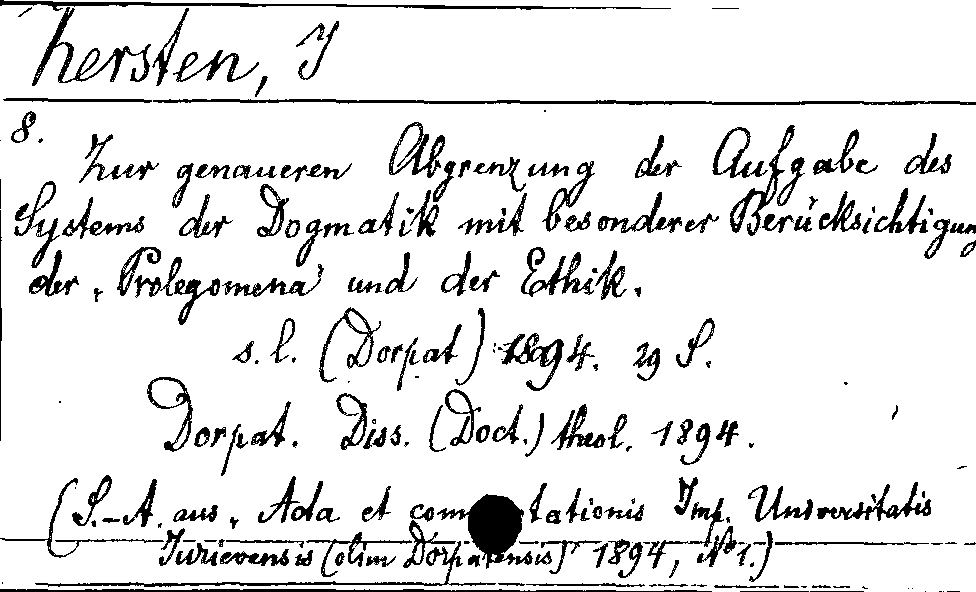 Kersten, J
8.
Zur genaueren Abgrenzung der Aufgabe des
Systems der Dogmatik mit besonderer Berücksichtigung
der „Prolegomena" und der Ethik.
s. l. (Dorpat) 1894. 29 S.
Dorpat. Diss. (Doct.) theol. 1894.
(S.-A. aus „Acta et commentationis Imp. Universitatis
Jurievensis (olim Dorpatensis)" 1894, No 1.)